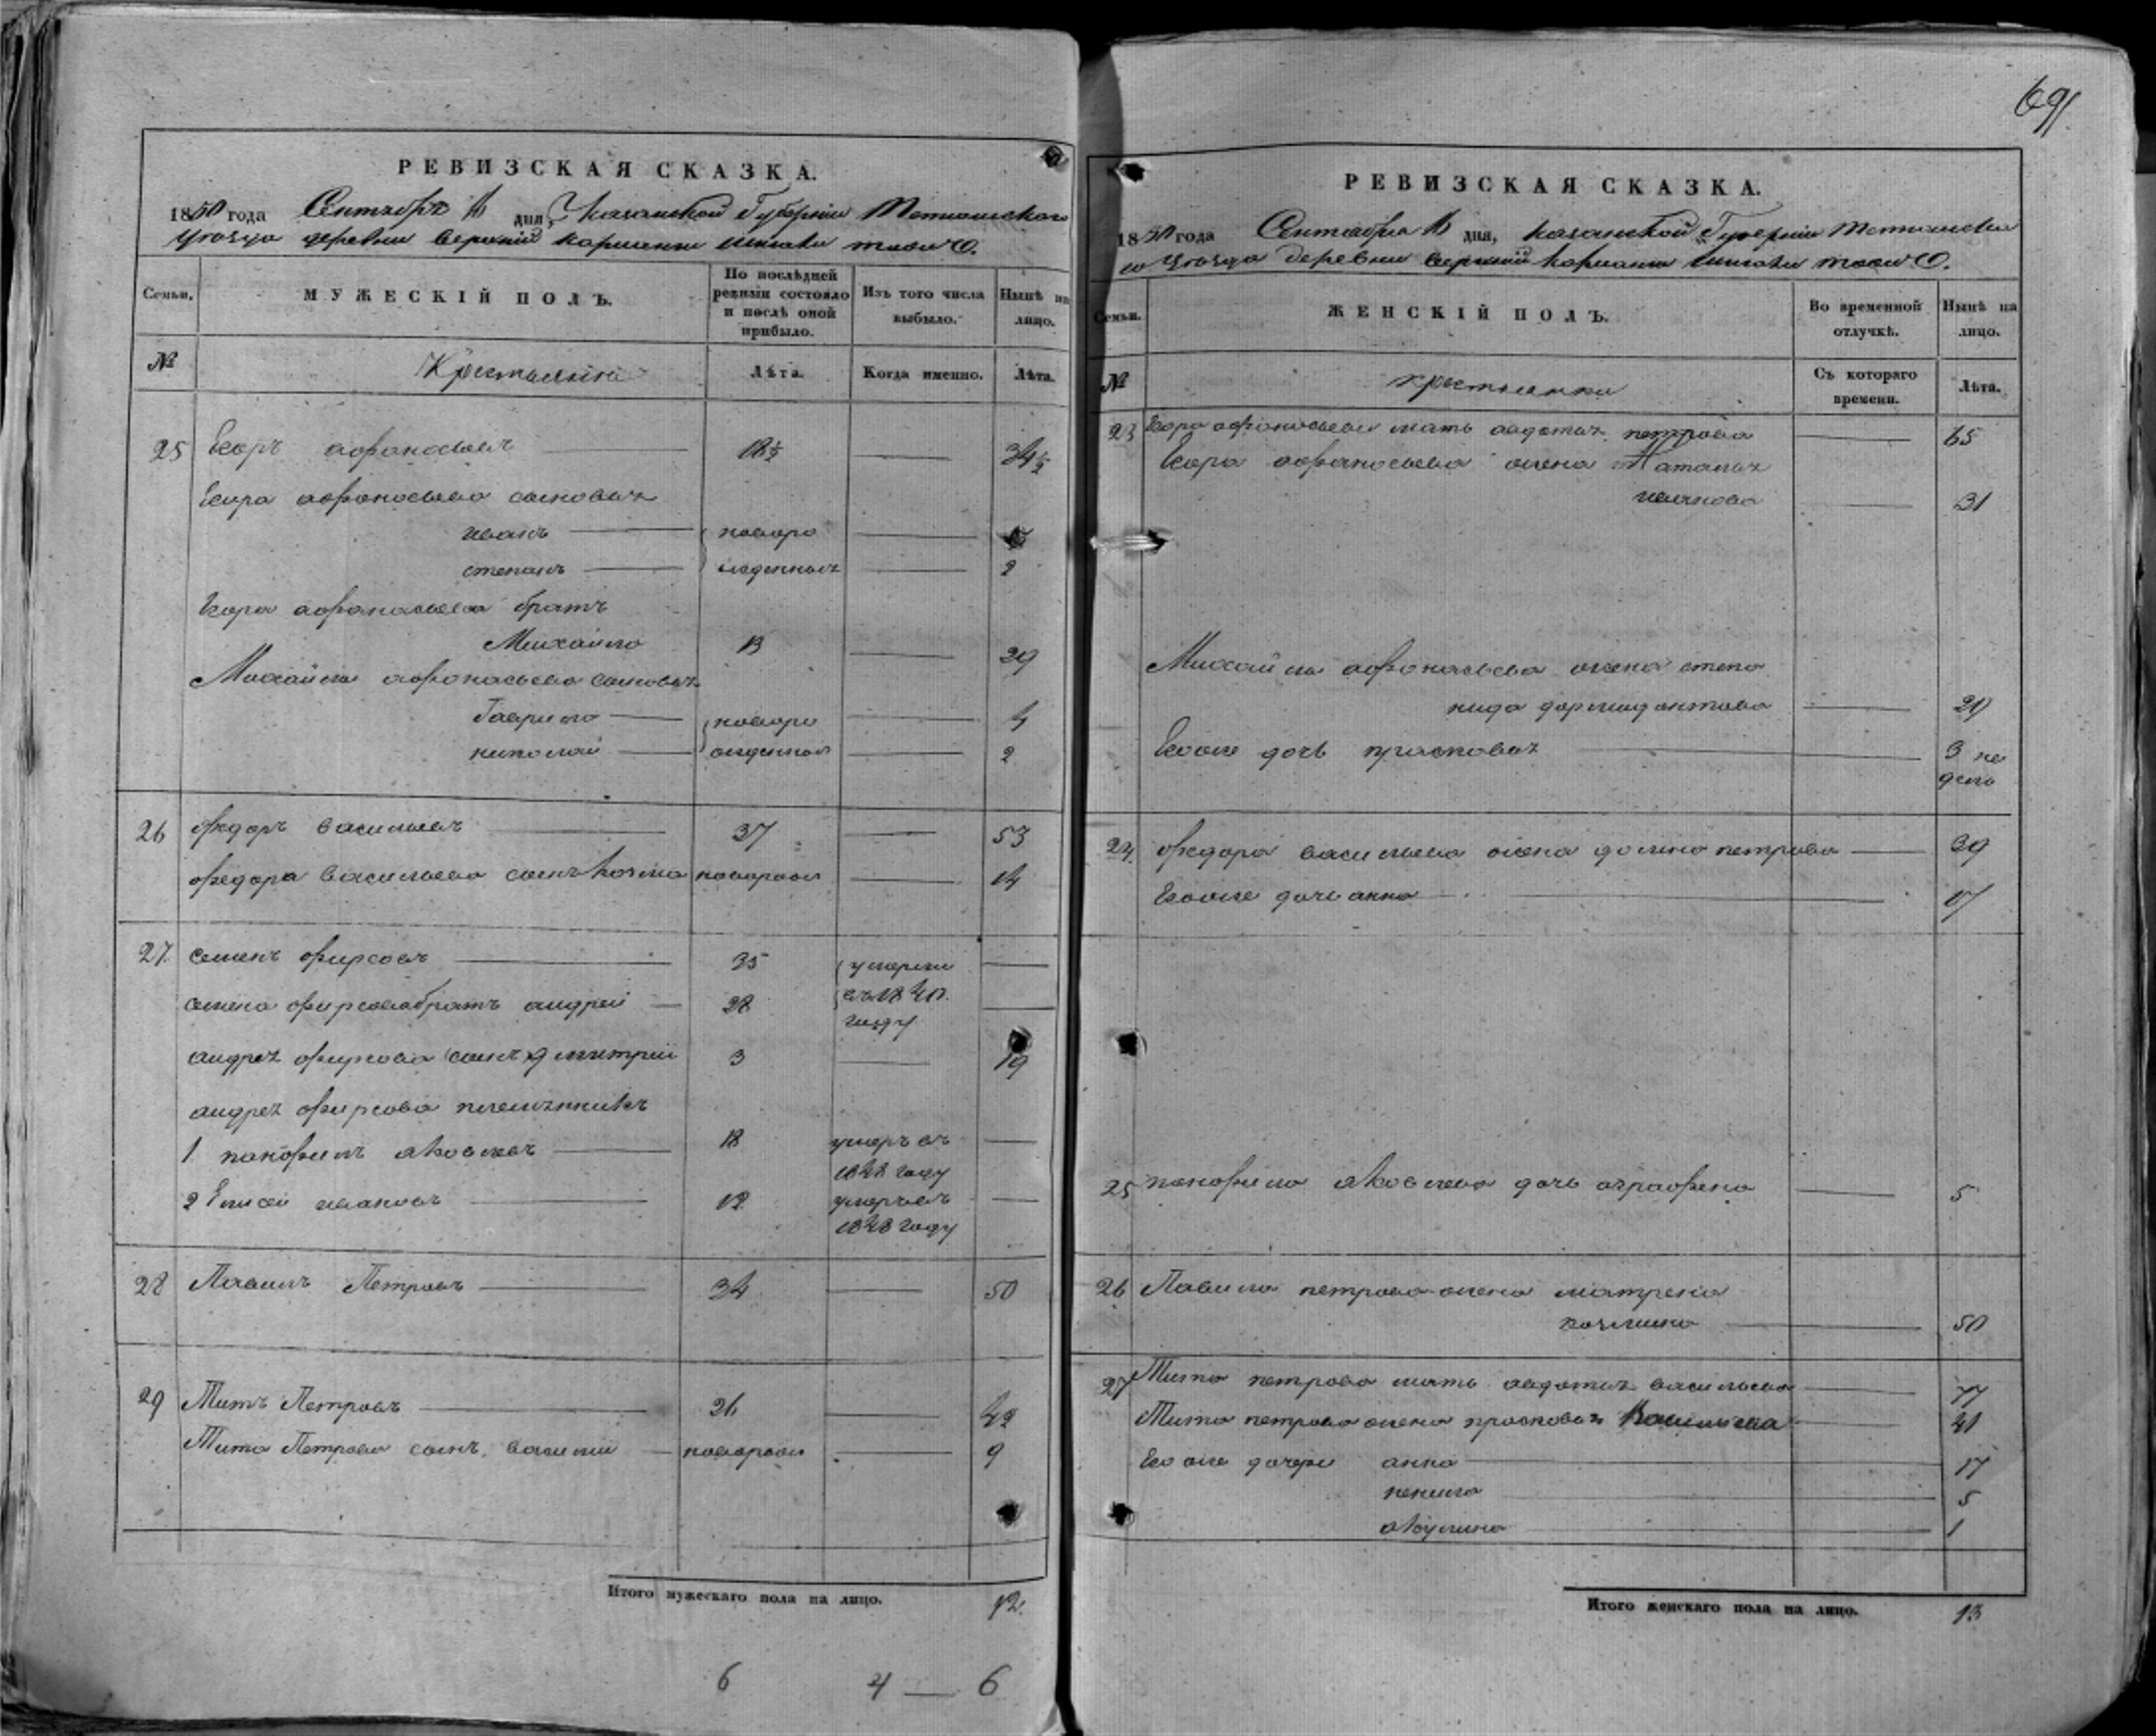 691
РЕВИЗСКАЯ СКАЗКА.
1850 года Сентября дня, Казанской Губернiи Тетюшскаго
уѣзда деревни верхнiй
Семьи.
МУЖЕСКIЙ ПОЛЪ.
По послѣдней ревизiи состояло и послѣ оной прибыло.
Изъ того числа выбыло.
Нынѣ на лицо.
№
Крестьяне
Лѣта.
Когда именно.
Лѣта.
25 Егоръ афонасьевъ 18½ 34½
Егора афонасьева сыновья
иванъ новоро
степанъ жденныя 2
Егора афонасьева братъ
Михайло 13 29
Михайла афонасьева сыновья
Гаврило новоро 4
николай жденныя 2
26 федоръ васильевъ 37 53
федора васильева сынъ козма новорож 14
27 семенъ фирсовъ 35 умерли
семена фирсова братъ андрей 28 въ 1840
году
андрея фирсова сынъ дмитрiй 3 19
андрея фирсова племянники
1 панфилъ яковлевъ 18 умеръ въ
1848 году
2 Елисей ивановъ 12 умеръ въ
1848 году
28 Павилъ Петровъ 34 50
29 Титъ Петровъ 26 42
Тита Петрова сынъ василiй новорож 9
Итого мужескаго пола на лицо. 12.
6 4 — 6
РЕВИЗСКАЯ СКАЗКА.
1850 года Сентября дня, казанской Губернiи Тетюшска
го уѣзда деревни верхнiй
Семьи.
ЖЕНСКIЙ ПОЛЪ.
Во временной отлучкѣ.
Нынѣ на лицо.
№
крестьянки
Съ котораго времени.
Лѣта.
23 Егора афонасьева мать авдотья петрова 65
Егора афонасьева жена Наталья
иванова 31
Михайла афонасьева жена степа
нида дормидонтова 29
Егоже дочь прасковья 3 не
дель
24 федора васильева жена домна петрова 39
Егоже дочь анна 17
25 панфила яковлева дочь аграфена 5
26 Павила петрова жена матрена
козмина 50
27 Тита петрова мать авдотья васильева 77
Тита петрова жена прасковья Васильева 41
Егоже дочери анна 17
ненила 5
акулина 1
Итого женскаго пола на лицо. 13